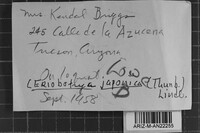 Mrs Kendal Briggs
245 Calle de la Azucena
Tucson, Arizona
On loquat. Low
(ERIOBOTRYA JAPONICA) (Thunb.)
Lindl.
Sept. 1958
ARIZ-M-AN22255